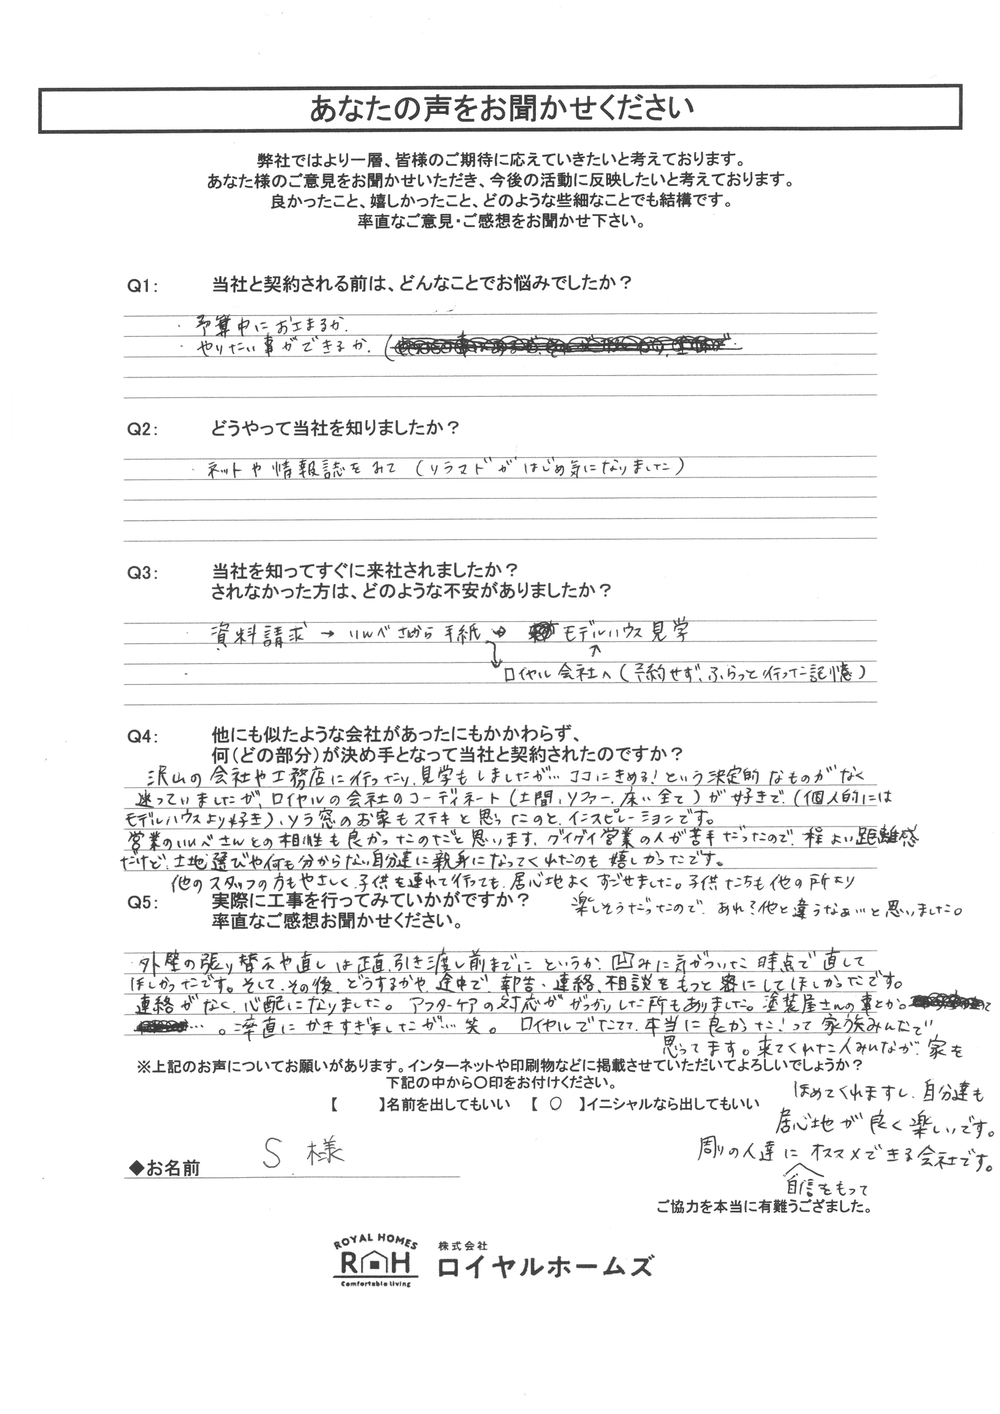 あなたの声をお聞かせください
弊社ではより一層、皆様のご期待に応えていきたいと考えております。
あなた様のご意見をお聞かせいただき、今後の活動に反映したいと考えております。
良かったこと、嬉しかったこと、どのような些細なことでも結構です。
率直なご意見・ご感想をお聞かせ下さい。
Q1: 当社と契約される前は、どんなことでお悩みでしたか？
・予算中におさまるか.
・やりたい事ができるか.
Q2: どうやって当社を知りましたか？
・ネットや情報誌をみて(ソラマドがはじめ気になりました)
Q3: 当社を知ってすぐに来社されましたか？
されなかった方は、どのような不安がありましたか？
資料請求→いんべさんから手紙→モデルハウス見学
ロイヤル会社へ(予約せず、ふらっと行った記憶)
Q4: 他にも似たような会社があったにもかかわらず、
何(どの部分)が決め手となって当社と契約されたのですか？
沢山の会社や工務店に行ったり、見学もしましたが…ココにきめる!という決定的なものがなく
迷っていましたが、ロイヤルの会社のコーディネート(土間、ソファー、床い全て)が好きで、(個人的には
モデルハウスより好き)、ソラ窓のお家もステキと思ったのと、インスピレーションです。
営業のいんべさんとの相性も良かったのだと思います、グイグイ営業の人が苦手だったので、程よい距離感
だけど、土地選びや何も分からない自分達に親身になってくれたのも嬉しかったです。
他のスタッフの方もやさしく、子供を連れて行っても、居心地よくすごせました。子供たちも他の所より
楽しそうだったので、あれ？他と違うなぁ…と思いました。
Q5: 実際に工事を行ってみていかがですか？
率直なご感想お聞かせください。
・外壁の張り替えや直しは正直、引き渡し前までにというか、凹みに気がついた時点で直して
ほしかったです。そして、その後、どうするかや、途中で、報告・連絡、相談をもっと密にしてほしかったです。
連絡がなく、心配になりました。アフターケアの対応ががっかりした所もありました。塗装屋さんの事とか。
…。率直にかきすぎましたが…笑。ロイヤルでたてて、本当に良かった!って家族みんなで
思ってます。来てくれた人みんなが、家を
ほめてくれますし、自分達も
居心地が良く楽しいです。
周りの人達に オススメできる会社です。
自信をもって
※上記のお声についてお願いがあります。インターネットや印刷物などに掲載させていただいてよろしいでしょうか？
下記の中から〇印をお付けください。
【　　】名前を出してもいい　【 〇 】イニシャルなら出してもいい
◆お名前 S 様
ご協力を本当に有難うございました。
ROYAL HOMES
RH
Comfortable living
株式会社
ロイヤルホームズ